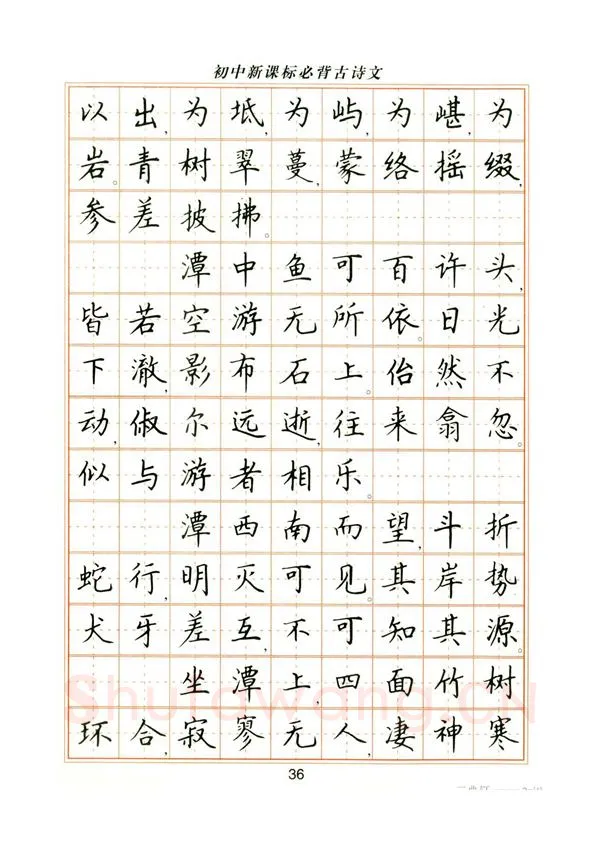 初中新课标必背古诗文
以出,为坻,为屿,为嵁,为
岩。青树翠蔓,蒙络摇缀,
参差披拂。
潭中鱼可百许头,
皆若空游无所依。日光
下澈,影布石上。佁然不
动,俶尔远逝,往来翕忽。
似与游者相乐。
潭西南而望,斗折
蛇行,明灭可见。其岸势
犬牙差互,不可知其源。
坐潭上,四面竹树
环合,寂寥无人,凄神寒
36
Shufawang.CN